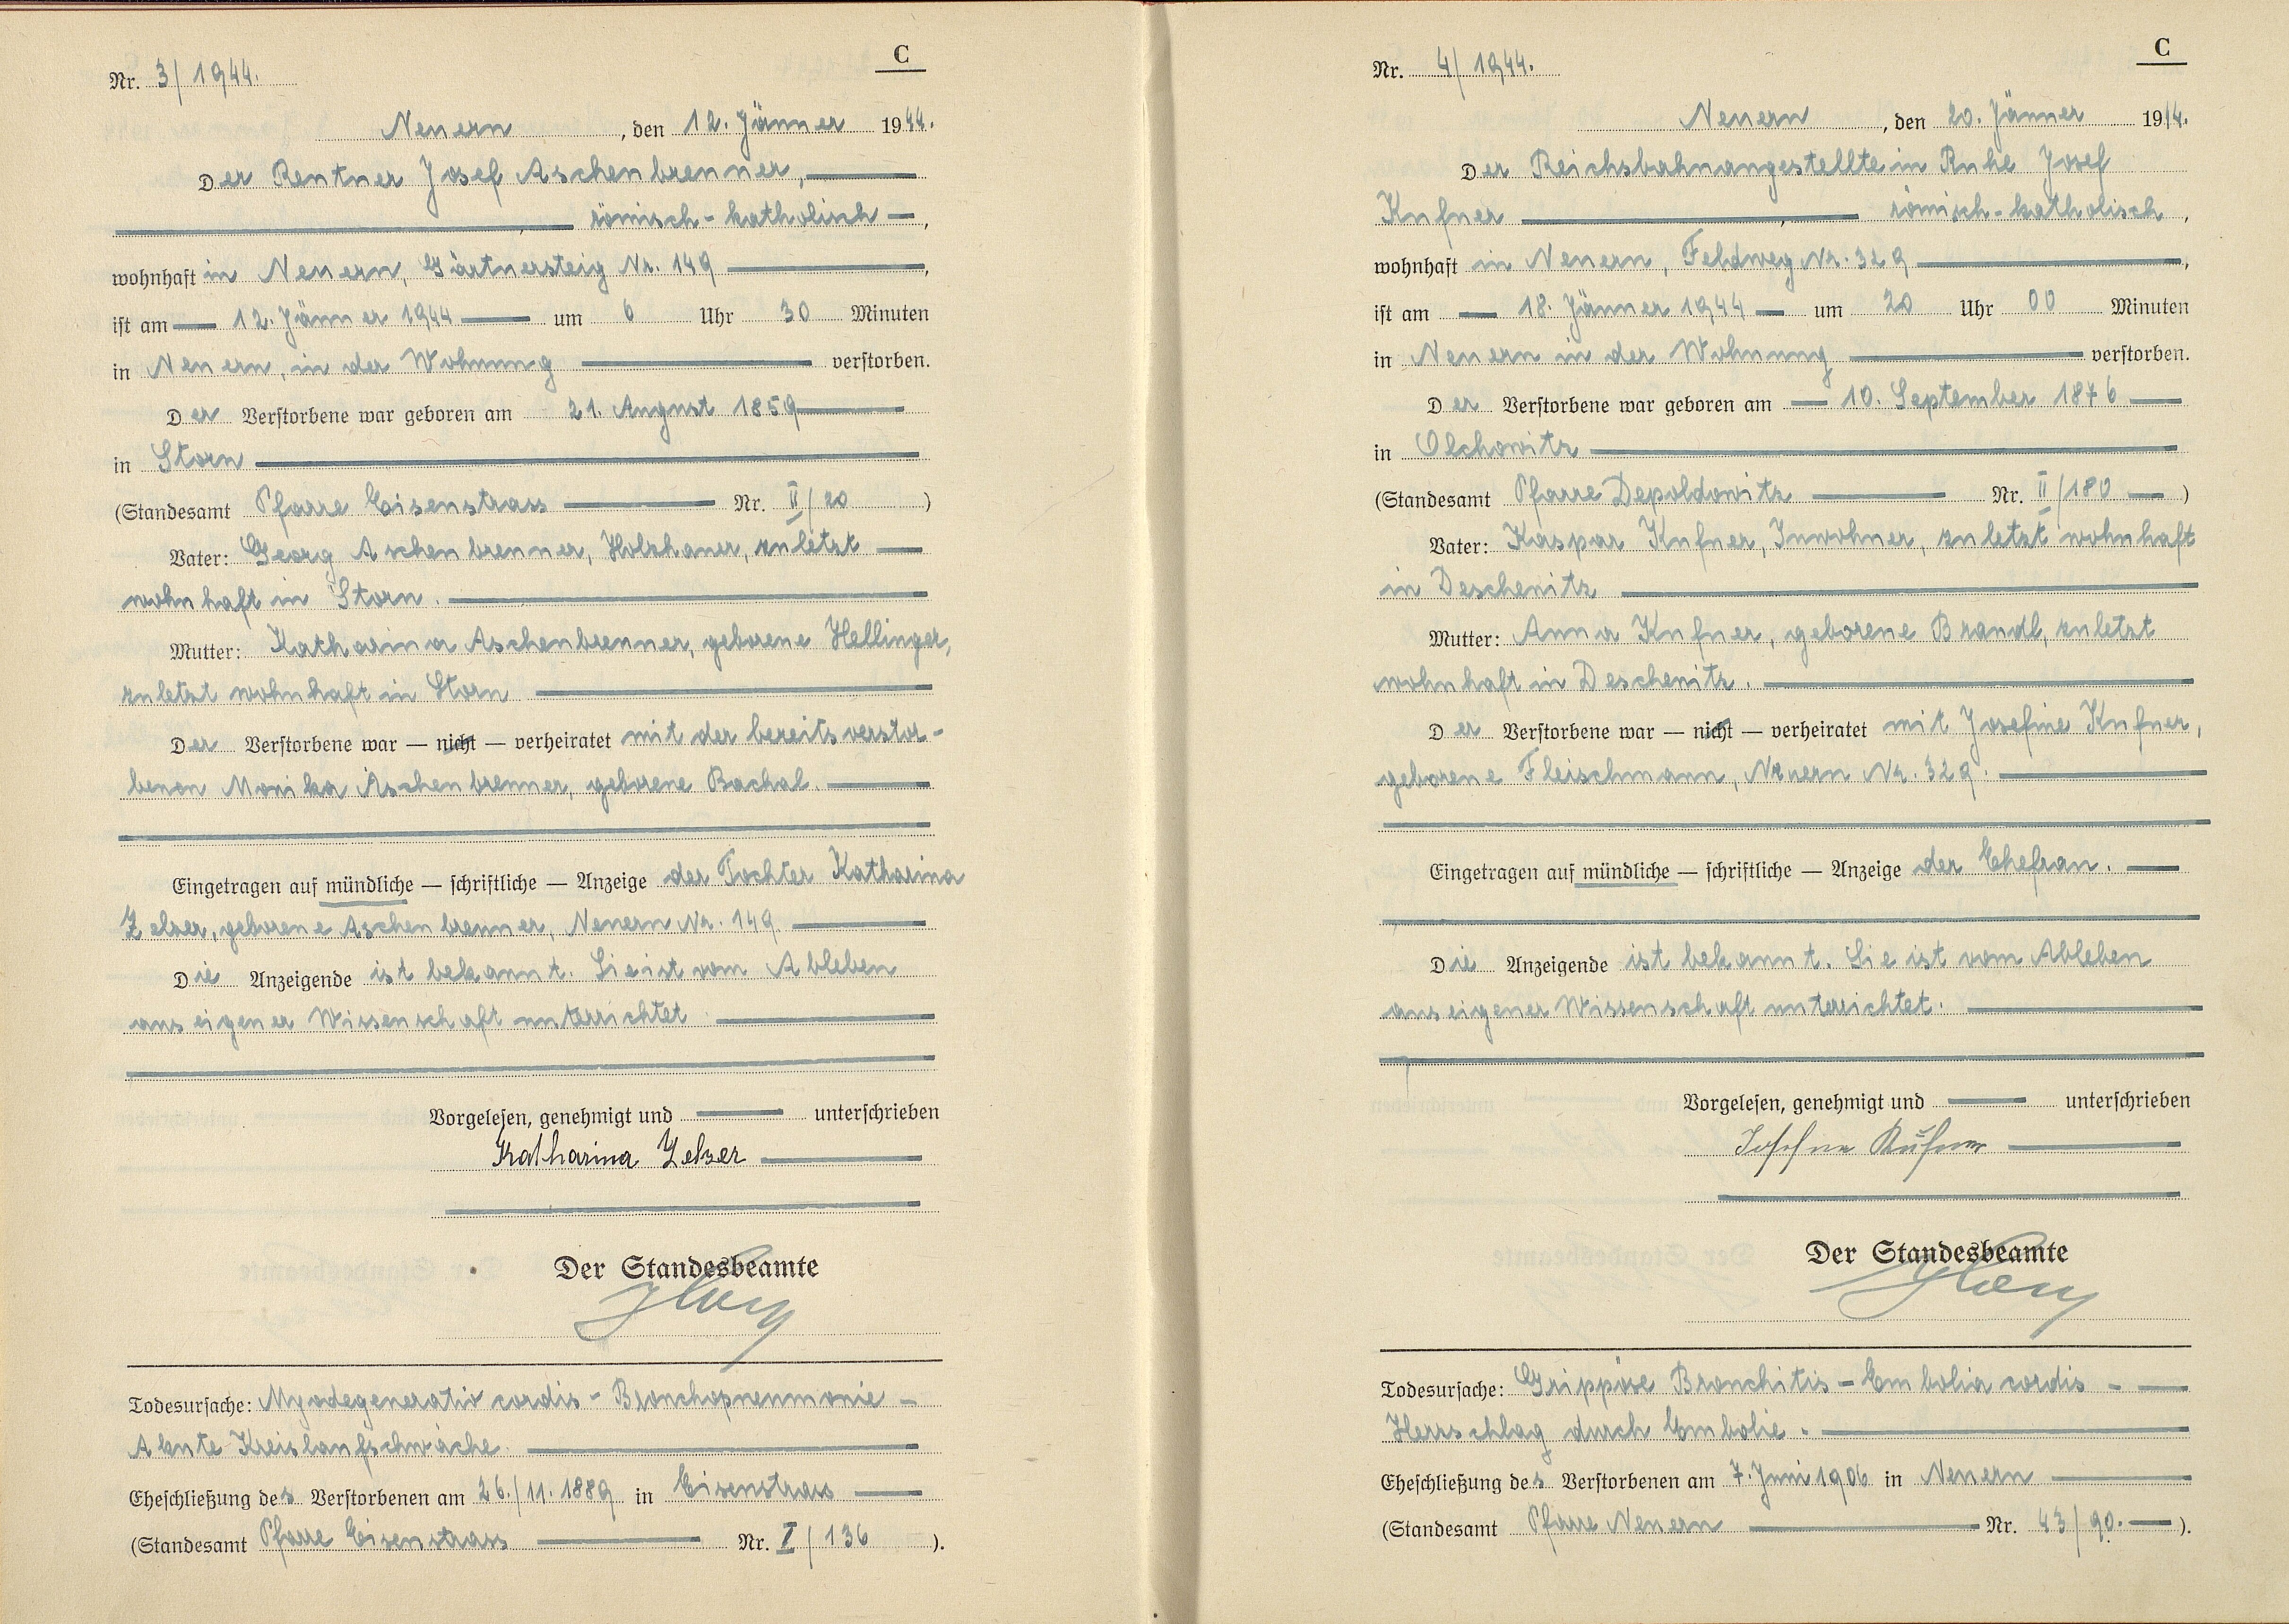 C
Nr. 3/1944.
Neuern, den 12. Jänner 1944.
Der Rentner Josef Aschenbrenner,
römisch-katholisch,
wohnhaft in Neuern, Gärtnersteig Nr. 149,
ist am 12. Jänner 1944 um 6 Uhr 30 Minuten
in Neuern, in der Wohnung verstorben.
Der Verstorbene war geboren am 21. August 1859
in Storn
(Standesamt Pfarre Eisenstrass Nr. II/20)
Vater: Georg Aschenbrenner, Holzhauer, zuletzt
wohnhaft in Storn.
Mutter: Katharina Aschenbrenner, geborene Hellinger,
zuletzt wohnhaft in Storn
Der Verstorbene war — nicht — verheiratet mit der bereits verstor-
benen Monika Aschenbrenner, geborene Bachal.
Eingetragen auf mündliche — schriftliche — Anzeige der Tochter Katharina
Zelzer, geborene Aschenbrenner, Neuern Nr. 149.
Die Anzeigende ist bekannt. Sie ist vom Ableben
aus eigener Wissenschaft unterrichtet.
Vorgelesen, genehmigt und unterschrieben
Katharina Zelzer
Der Standesbeamte
Todesursache: Myodegeneratio cordis - Bronchopneumonie -
Akute Kreislaufschwäche.
Eheschließung des Verstorbenen am 26./11. 1889 in Eisenstrass
(Standesamt Pfarre Eisenstrass Nr. I/136).
C
Nr. 4/1944.
Neuern, den 20. Jänner 1944.
Der Reichsbahnangestellte in Ruhe Josef
Kufner, römisch-katholisch,
wohnhaft in Neuern, Feldweg Nr. 329,
ist am 18. Jänner 1944 um 20 Uhr 00 Minuten
in Neuern in der Wohnung verstorben.
Der Verstorbene war geboren am 10. September 1876
in Olchowitz
(Standesamt Pfarre Depoldowitz Nr. II/180)
Vater: Kaspar Kufner, Inwohner, zuletzt wohnhaft
in Deschenitz
Mutter: Anna Kufner, geborene Brandl, zuletzt
wohnhaft in Deschenitz.
Der Verstorbene war — nicht — verheiratet mit Josefine Kufner,
geborene Fleischmann, Neuern Nr. 329.
Eingetragen auf mündliche — schriftliche — Anzeige der Ehefrau.
Die Anzeigende ist bekannt. Sie ist vom Ableben
aus eigener Wissenschaft unterichtet.
Vorgelesen, genehmigt und unterschrieben
Josefine Kufner
Der Standesbeamte
Todesursache: Grippöse Bronchitis - Embolia cordis -
Herzschlag durch Embolie.
Eheschließung des Verstorbenen am 7. Juni 1906 in Neuern
(Standesamt Pfarre Neuern Nr. 43/90.).